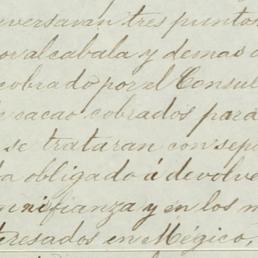 versaran tres puntos
por alcabala y demas d
cobrado por el Consul
e cacao cobrados para
se trataran con sepa
a obligado á devolve
fianza y en los m
teresados en Mégico,